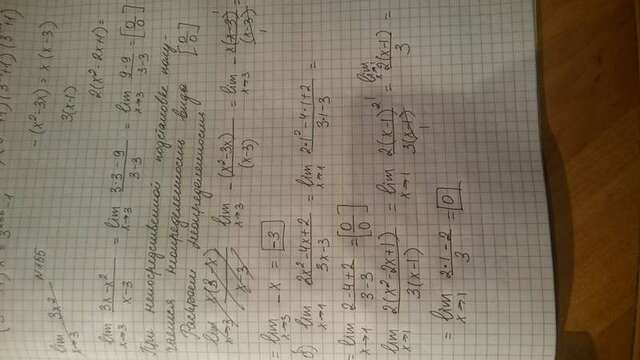 №165
lim x→3 3x²
- (x² - 3x) = x(x-3)
3(x-1)
2(x² - 2x + 1) =
lim x→3 (3x - x²)/(x - 3) = lim x→3 (3·3 - 9)/(3 - 3) = lim x→3 (9 - 9)/(3 - 3) = [0/0]
При непосредственной подстановке полу-
чается неопределенность вида [0/0]
Раскроем неопределенность
lim x→3 x(3-x)/(x-3) lim x→3 -(x² - 3x)/(x-3) = lim x→3 -x(x-3)/(x-3) =
= lim x→3 -x = -3
б) lim x→1 (2x² - 4x + 2)/(3x - 3) = lim x→1 (2·1² - 4·1 + 2)/(3·1 - 3) =
= lim x→1 (2 - 4 + 2)/(3 - 3) = [0/0]
lim x→1 2(x² - 2x + 1)/3(x-1) = lim x→1 2(x-1)²/3(x-1) = lim 2(x-1)/3 =
= lim x→1 (2·1 - 2)/3 = 0